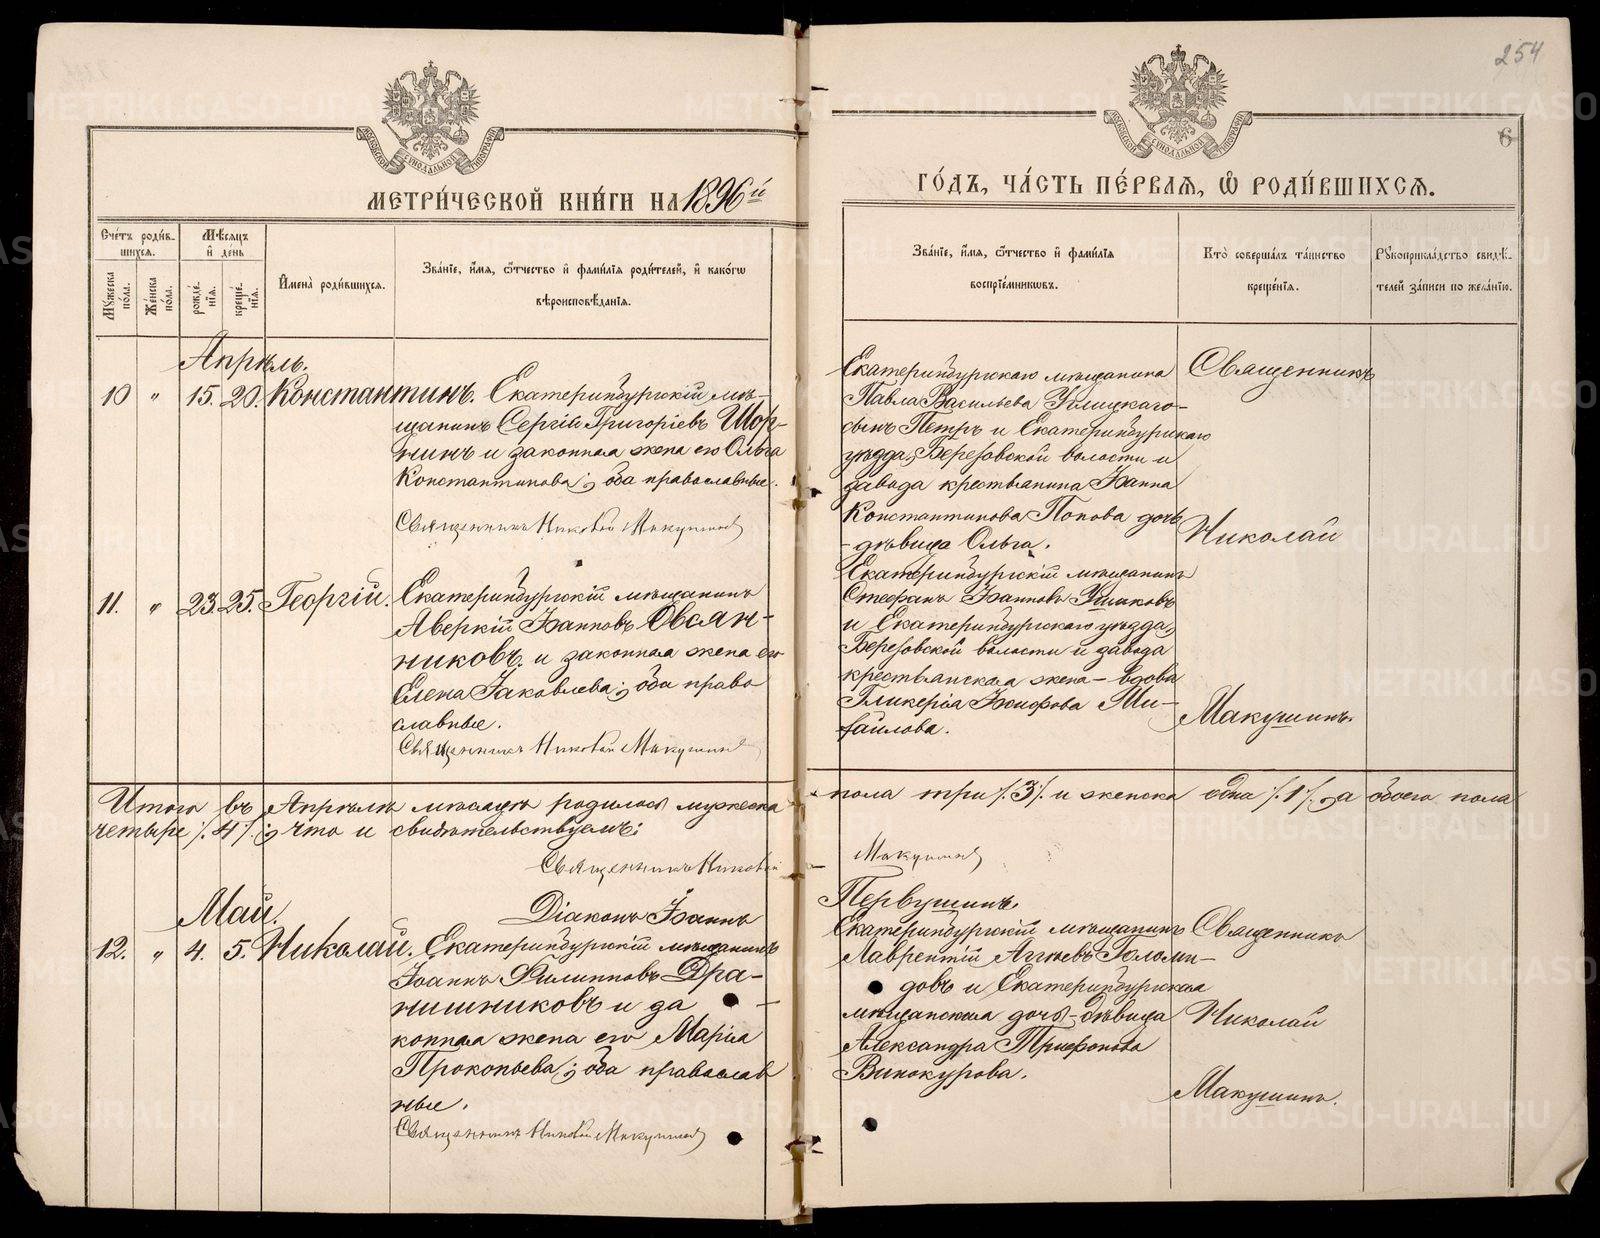 254
6
МЕТРИ́ЧЕСКОЙ КНИ́ГИ НА 1896й
ГО́ДЪ, ЧА́СТЬ ПЕ́РВАѦ, Ѡ҆ РОДИ́ВШИХСѦ.
Сче́тъ роди́в-
шихсѧ.
Мꙋ́жеска по́ла.
Же́нска по́ла.
Мѣ́сѧцъ и҆ де́нь
рожде́-нїѧ.
креще́-нїѧ.
И҆мена̀ роди́вшихсѧ.
Зва́нїе, и҆́мѧ, ѻ҆́тчество и҆ фами́лїѧ роди́телей, и҆ како́гѡ
вѣроисповѣ́данїѧ.
Зва́нїе, и҆́мѧ, ѻ҆́тчество и҆ фами́лїѧ
воспрїе́мникѡвъ.
Кто̀ соверша́лъ та́инство
креще́нїѧ.
Рꙋкоприкла́дство свидѣ́-
телей за́писи по жела́нїю.
Апрѣль.
10 " 15. 20. Константинъ. Екатеринбургскій мѣ-
щанинъ Сергій Григоріевъ Шор-
нинъ и законная жена его Ольга
Константинова; оба православные.
Священникъ Николай Макушинъ
Екатеринбургскаго мѣщанина
Павла Васильева Углицкаго-
сынъ Петръ и Екатеринбургскаго
уѣзда, Березовской волости и
завода крестьянина Іоанна
Константинова Попова дочь
- дѣвица Ольга.
Священникъ
Николай
Макушинъ.
11. " 23. 25. Георгій. Екатеринбургскій мѣщанинъ
Аверкій Іоанновъ Овсян-
никовъ и законная жена его
Елена Іаковлева; оба право
славные.
Священникъ Николай Макушинъ
Екатеринбургскій мѣщанинъ
Стефанъ Іоанновъ Ушаковъ
и Екатеринбургскаго уѣзда,
Березовской волости и завода
крестьянская жена - вдова
Гликерія Ми-
хайлова.
Итого въ Апрѣлѣ мѣсяцѣ родилось мужеска пола три /.3/. и женска одна /.1/. а обоего пола
четыре /.4/.; что и свидѣтельствуемъ:
Священникъ Николай Макушинъ
Діаконъ Іоаннъ Первушинъ.
Май.
12. " 4. 5. Николай. Екатеринбургскій мѣщанинъ
Іоаннъ Филипповъ Дра-
нишниковъ и за -
конная жена его Марія
Прокопьева; оба православ
ные.
Священникъ Николай Макушинъ
Екатеринбургскій мѣщанинъ
Лаврентій Аггѣевъ Голоми-
довъ и Екатеринбургская
мѣщанская дочь - дѣвица
Александра Трифонова
Винокурова.
Священникъ
Николай
Макушинъ.
METRIKI.GASO-URAL.RU